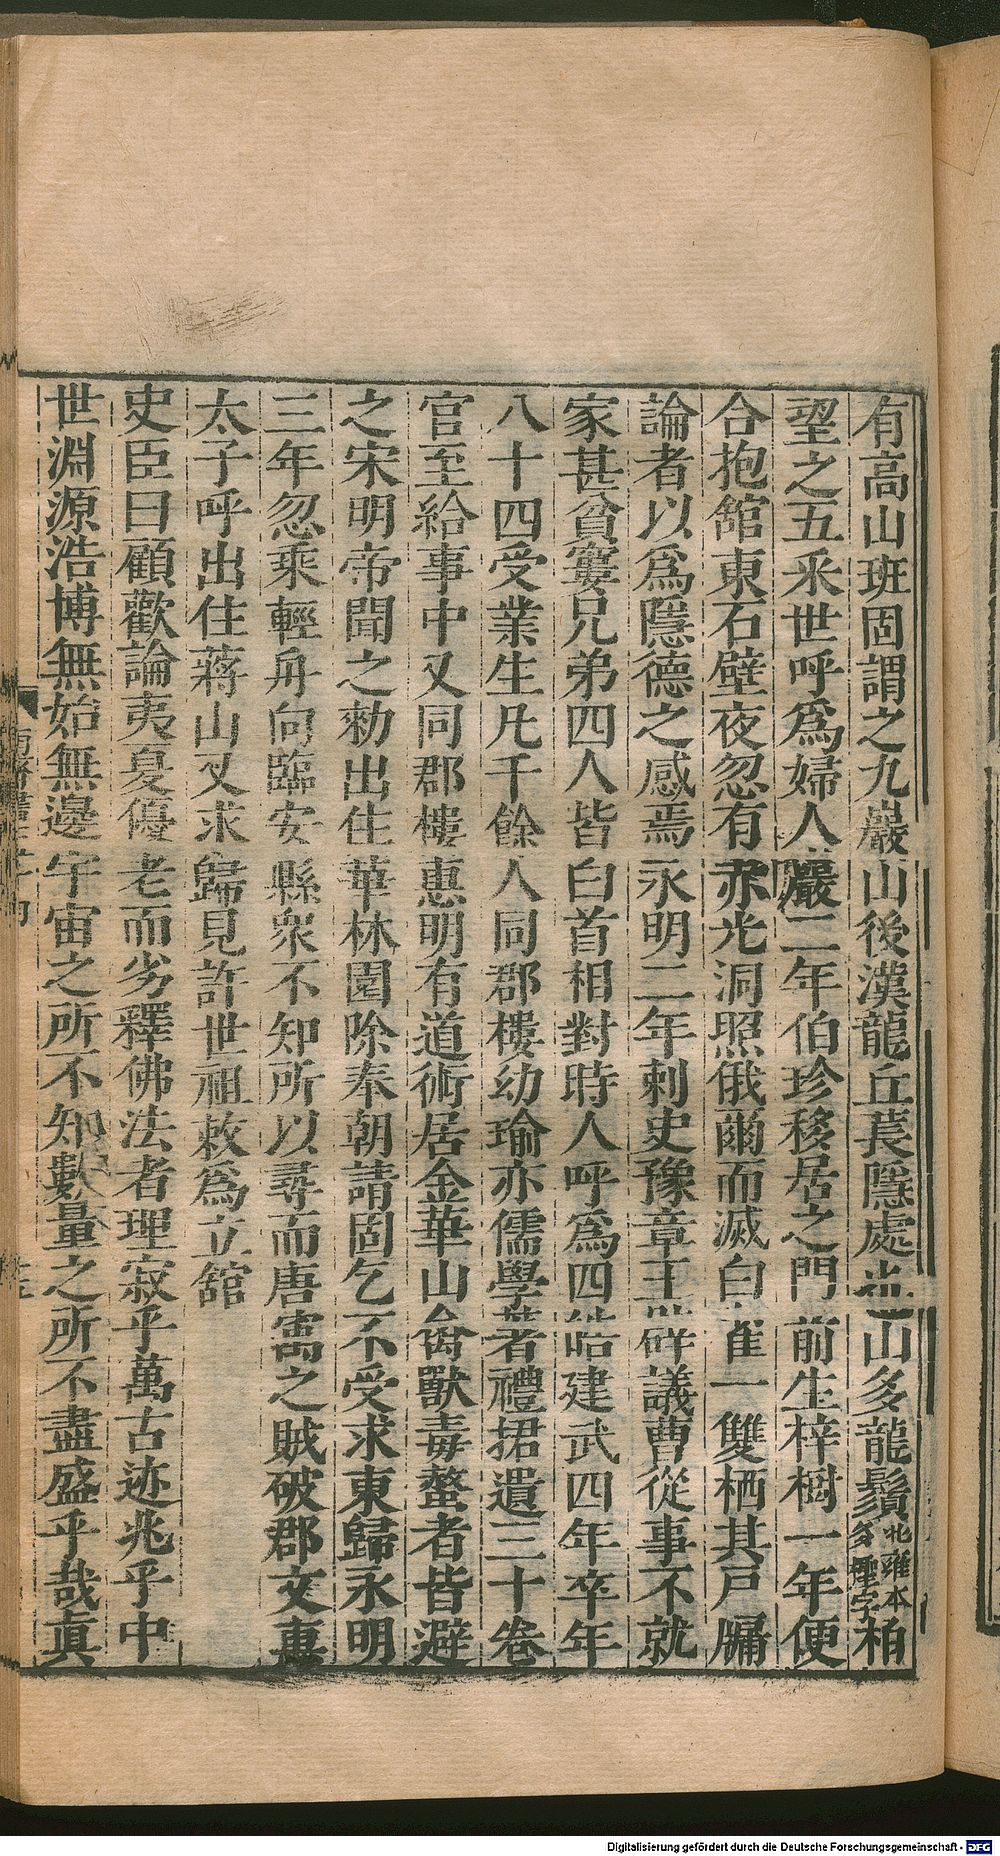 有高山班固謂之九巖山後漢龍丘萇隱處也山多龍鬚北雍本多檉字柏
望之五采世呼爲婦人巖二年伯珍移居之門前生梓樹一年便
合抱舘東石壁夜忽有赤光洞照俄爾而滅白雀一雙栖其戸牖
論者以爲隱德之感焉永明二年刺史豫章王辟議曹從事不就
家甚貧窶兄弟四人皆白首相對時人呼爲四皓建武四年卒年
八十四受業生凡千餘人同郡樓幼瑜亦儒學著禮捃遺三十卷
官至給事中又同郡樓惠明有道術居金華山禽獸毒螫者皆避
之宋明帝聞之勑出住華林園除奉朝請固乞不受求東歸永明
三年忽乘輕舟向臨安縣衆不知所以尋而唐㝢之賊破郡文惠
太子呼出住蔣山又求歸見許世祖敕爲立舘
史臣曰顧歡論夷夏優老而劣釋佛法者理寂乎萬古迹兆乎中
世淵源浩博無始無邊宇宙之所不知數量之所不盡盛乎哉眞
Digitalisierung gefördert durch die Deutsche Forschungsgemeinschaft - DFG